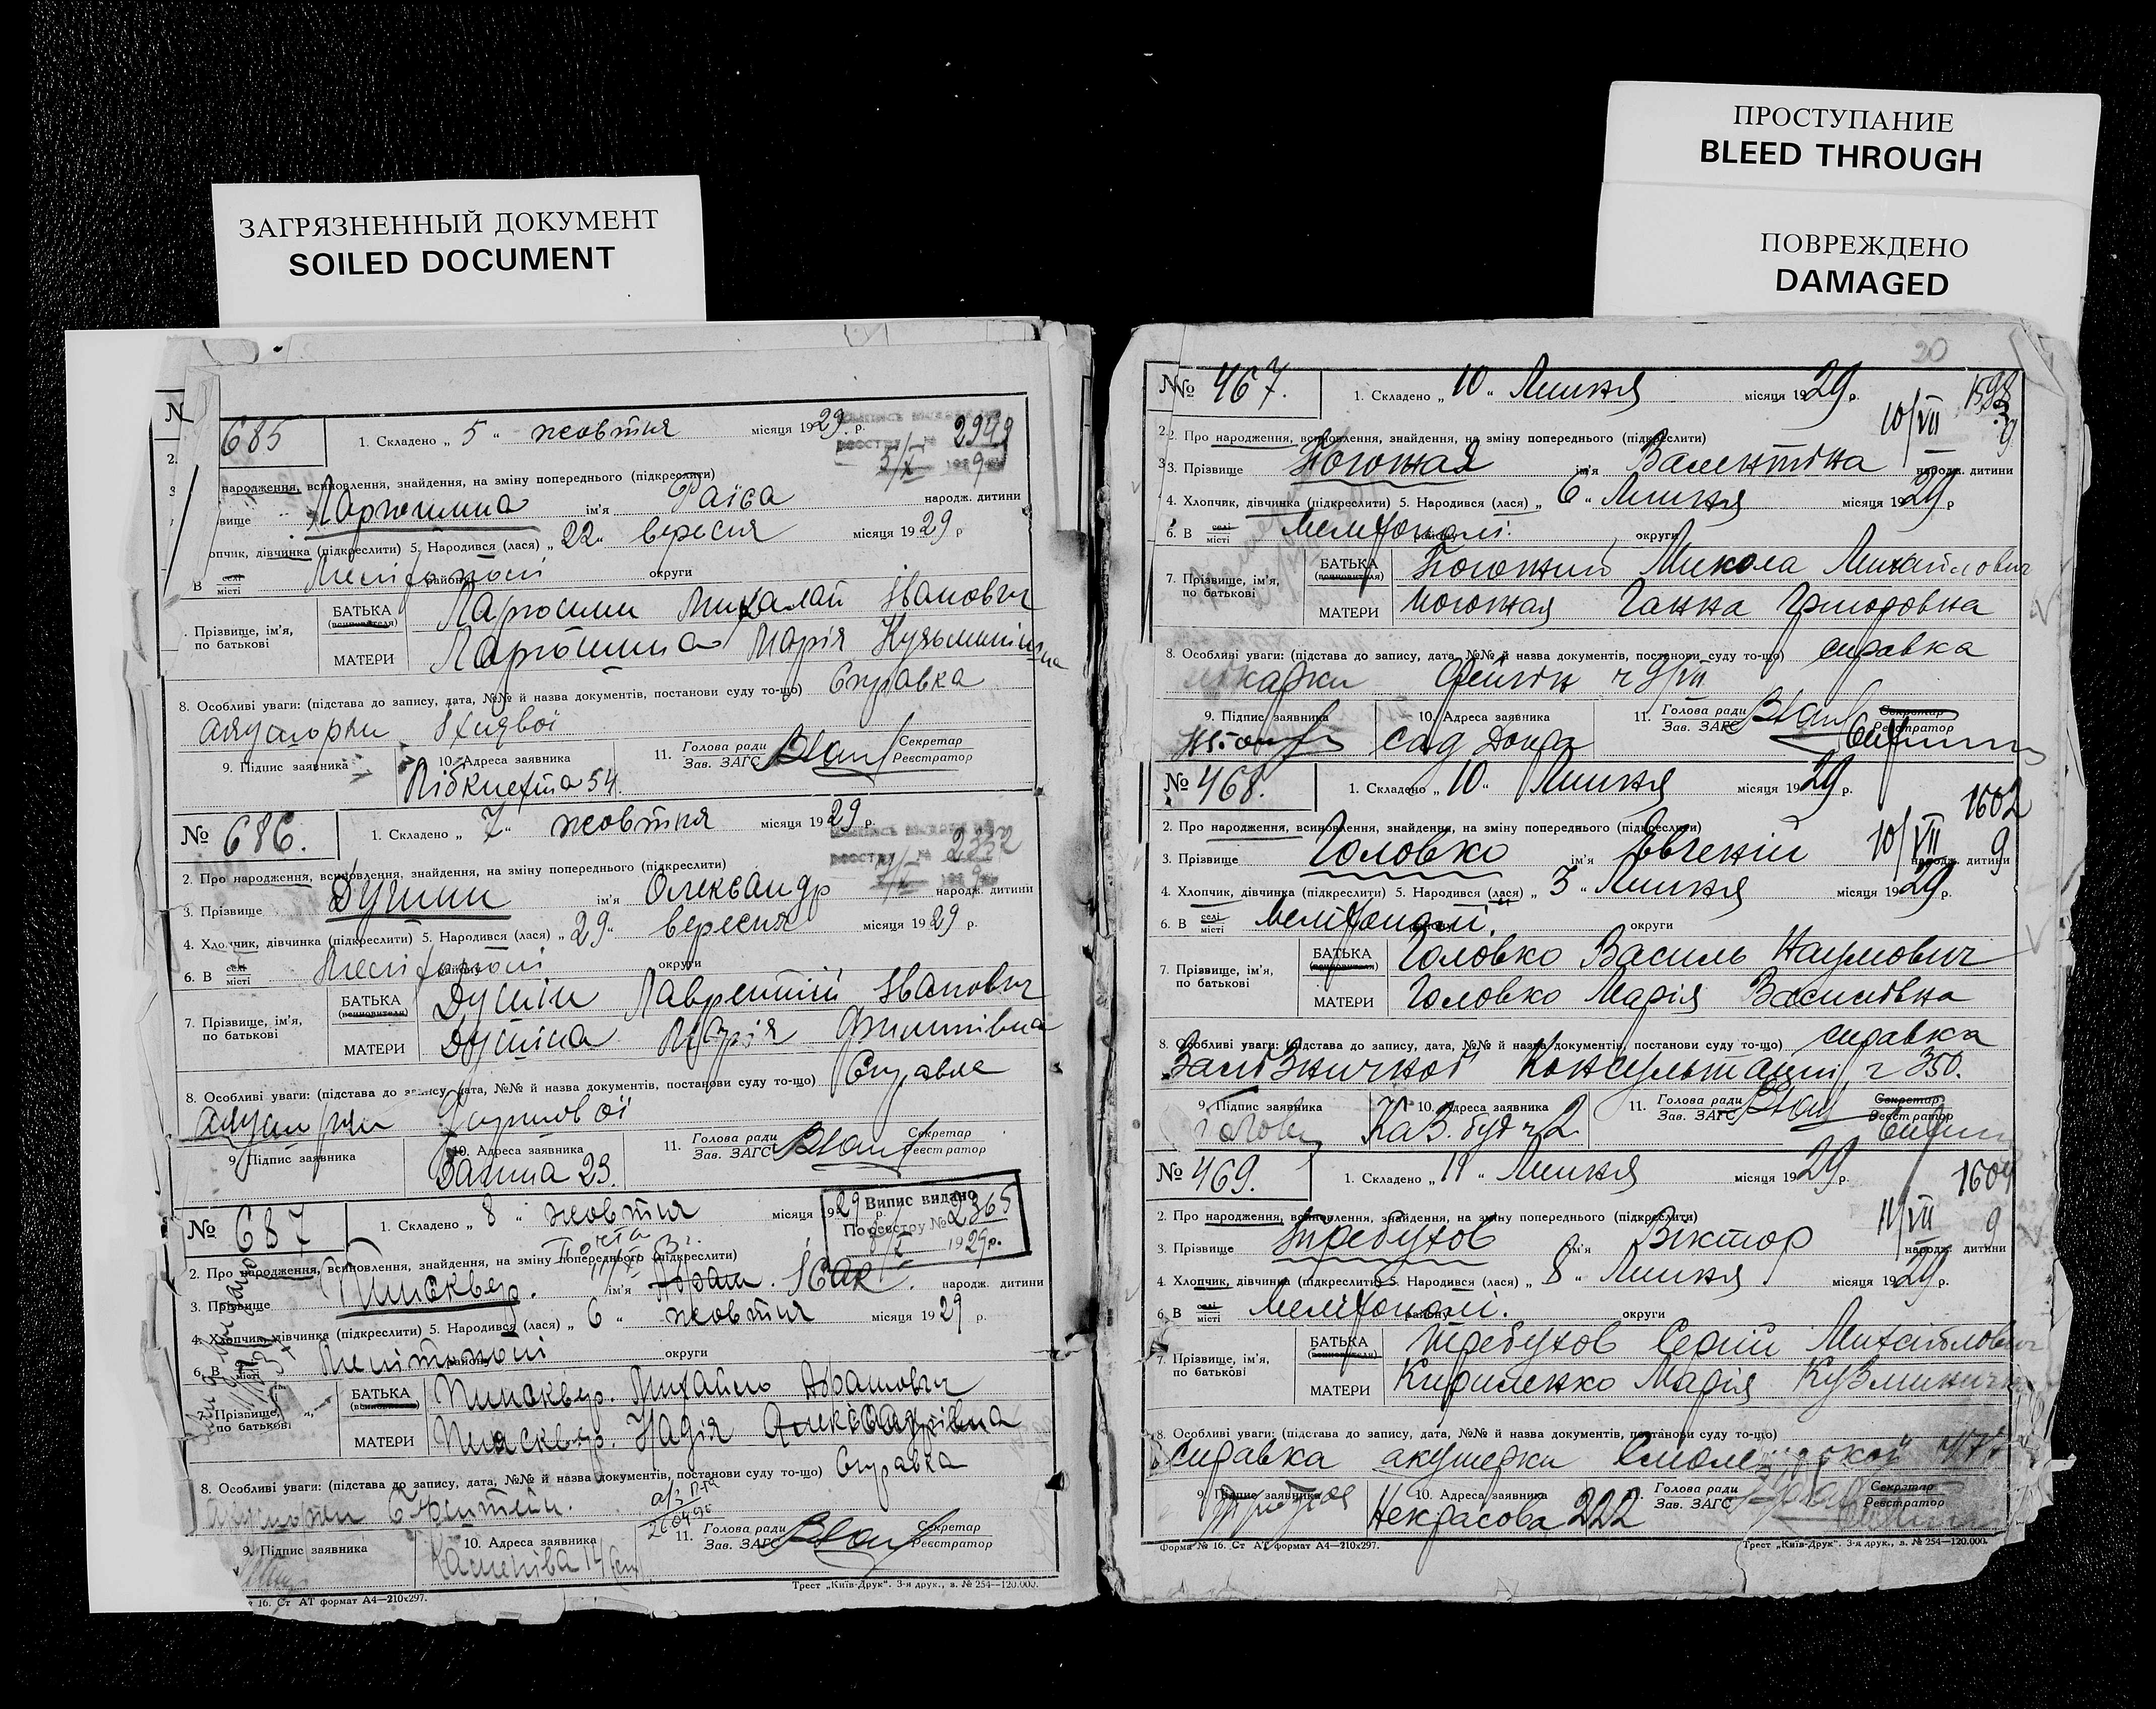 ЗАГРЯЗНЕННЫЙ ДОКУМЕНТ
SOILED DOCUMENT
ПРОСТУПАНИЕ
BLEED THROUGH
ПОВРЕЖДЕНО
DAMAGED
N
685 1. Складено „ 5 “ жовтня місяця 1929. р.
2.
народження, всиновлення, знайдення, на зміну попереднього (підкреслити)
вище Ларюшина ім'я Раїса народж. дитини
опчик, дівчинка (підкреслити) 5. Народився (лася) „ 22 “ вересня місяця 1929 р
В селі місті Мелітополі району округи
. Прізвище, ім'я, по батькові БАТЬКА (всиновителя) Ларюшин Миколай Іванович
МАТЕРИ Ларюшина Марія Кузьминішна
8. Особливі уваги: (підстава до запису, дата, №№ й назва документів, постанови суду то-що) Справка
акушорки
9. Підпис заявника 10. Адреса заявника 11. Голова ради Зав. ЗАГС Секретар Реєстратор
Лібкнехта 54.
№ 686. 1. Складено „ 7 “ жовтня місяця 1929 р.
2. Про народження, всиновлення, знайдення, на зміну попереднього (підкреслити)
3. Прізвище Душин ім'я Олександр народж. дитини
4. Хлопчик, дівчинка (підкреслити) 5. Народився (лася) „ 29 “ вересня місяця 1929 р.
6. В селі місті Мелітополі району округи
7. Прізвище, ім'я, по батькові БАТЬКА (всиновителя) Душін Лаврентій Іванович
МАТЕРИ Душіна Марія Филипівна
8. Особливі уваги: (підстава до запису, дата, №№ й назва документів, постанови суду то-що) Справка
9. Підпис заявника 10. Адреса заявника 11. Голова ради Зав. ЗАГС Секретар Реєстратор
23.
№ 687 1. Складено „ 8 “ жовтня місяця 1929 р.
Випис видано
По реєстру № 2365
1929 р.
2. Про народження, всиновлення, знайдення, на зміну попереднього (підкреслити)
3. Прізвище Пинсквер. ім'я Абрам. Ісак. народж. дитини
4. Хлопчик, дівчинка (підкреслити) 5. Народився (лася) „ 6 “ жовтня місяця 1929 р.
6. В місті Мелітополі району округи
7. Прізвище, ім'я, по батькові БАТЬКА (всиновителя) Пинсквер. Михайло Абрамович
МАТЕРИ Пинсквер. Надія Александрівна
8. Особливі уваги: (підстава до запису, дата, №№ й назва документів, постанови суду то-що) Справка
9. Підпис заявника 10. Адреса заявника 11. Голова ради Зав. ЗАГС Секретар Реєстратор
№ 16. Ст АТ формат А4—210х297. Трест „Київ-Друк“. 3-я друк., з. № 254—120.000.
20
№ 467. 1. Складено „ 10 “ Липня місяця 1929 р.
10/VII 9
2. Про народження, всиновлення, знайдення, на зміну попереднього (підкреслити)
3. Прізвище Ногожая ім'я Валентіна народж. дитини
4. Хлопчик, дівчинка (підкреслити) 5. Народився (лася) „ 6 “ Липня місяця 1929 р
6. В селі місті Мелітополі. району округи
7. Прізвище, ім'я, по батькові БАТЬКА (всиновителя) Ногожий Микола Михайлович
МАТЕРИ Ногожая Ганна Григоровна
8. Особливі уваги: (підстава до запису, дата, №№ й назва документів, постанови суду то-що) справка
9. Підпис заявника 10. Адреса заявника 11. Голова ради Зав. ЗАГС Секретар Реєстратор
сад
№ 468. 1. Складено „ 10 “ Липня місяця 1929 р.
1602
10/VII 9
2. Про народження, всиновлення, знайдення, на зміну попереднього (підкреслити)
3. Прізвище Головко ім'я Євгеній народж. дитини
4. Хлопчик, дівчинка (підкреслити) 5. Народився (лася) „ 3 “ Липня місяця 1929 р.
6. В селі місті Мелітополі. району округи
7. Прізвище, ім'я, по батькові БАТЬКА (всиновителя) Головко Василь Наумович
МАТЕРИ Головко Марія Василівна
8. Особливі уваги: (підстава до запису, дата, №№ й назва документів, постанови суду то-що) справка
Залізничної Консультації, ч 350.
9. Підпис заявника 10. Адреса заявника 11. Голова ради Зав. ЗАГС Секретар Реєстратор
Каз. буд ч 2
№ 469. 1. Складено „ 11 “ Липня місяця 1929 р.
1604
11/VII 9
2. Про народження, всиновлення, знайдення, на зміну попереднього (підкреслити)
3. Прізвище Требухов ім'я Віктор народж. дитини
4. Хлопчик, дівчинка (підкреслити) 5. Народився (лася) „ 8 “ Липня місяця 1929 р.
6. В селі місті Мелітополі. району округи
7. Прізвище, ім'я, по батькові БАТЬКА (всиновителя) Требухов Сергій Михайлович
МАТЕРИ Кириленко Марія
8. Особливі уваги: (підстава до запису, дата, №№ й назва документів, постанови суду то-що)
справка акушерки
9. Підпис заявника 10. Адреса заявника Голова ради Зав. ЗАГС Секретар Реєстратор
Некрасова 222
Форма № 16. Ст АТ формат А4—210х297. Трест „Київ-Друк“. 3-я друк., з. № 254—120.000.